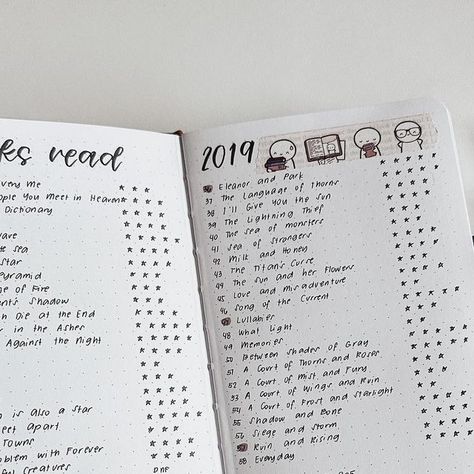 ks read
very Me
ople You Meet in Heaven
Dictionary
ave
e sea
Star
yramid
e of Fire
ent's Shadow
n Die at the End
r in the Ashes
Against the Night
n is also a Star
eet Apart
Towns
oblem with Forever
ful Creatures DNF
2019
Eleanor and Park
37 The Language of Thorns
38 I'll Give You the Sun
39 The Lightning Thief
40 The Sea of monsters
41 Sea of Strangers
42 Milk and Honey
43 The Titan's Curse
44 The Sun and her Flowers
45 Love and misadventure
46 Song of the Current
Lullabies
48 What Light
49 Memories
50 Between Shades of Gray
51 A Court of Thorns and Roses
52 A Court of Mist and Fury
53 A Court of Wings and Ruin
54 A Court of Frost and Starlight
55 Shadow and Bone
56 Siege and Storm
Ruin and Rising
58 Everyday